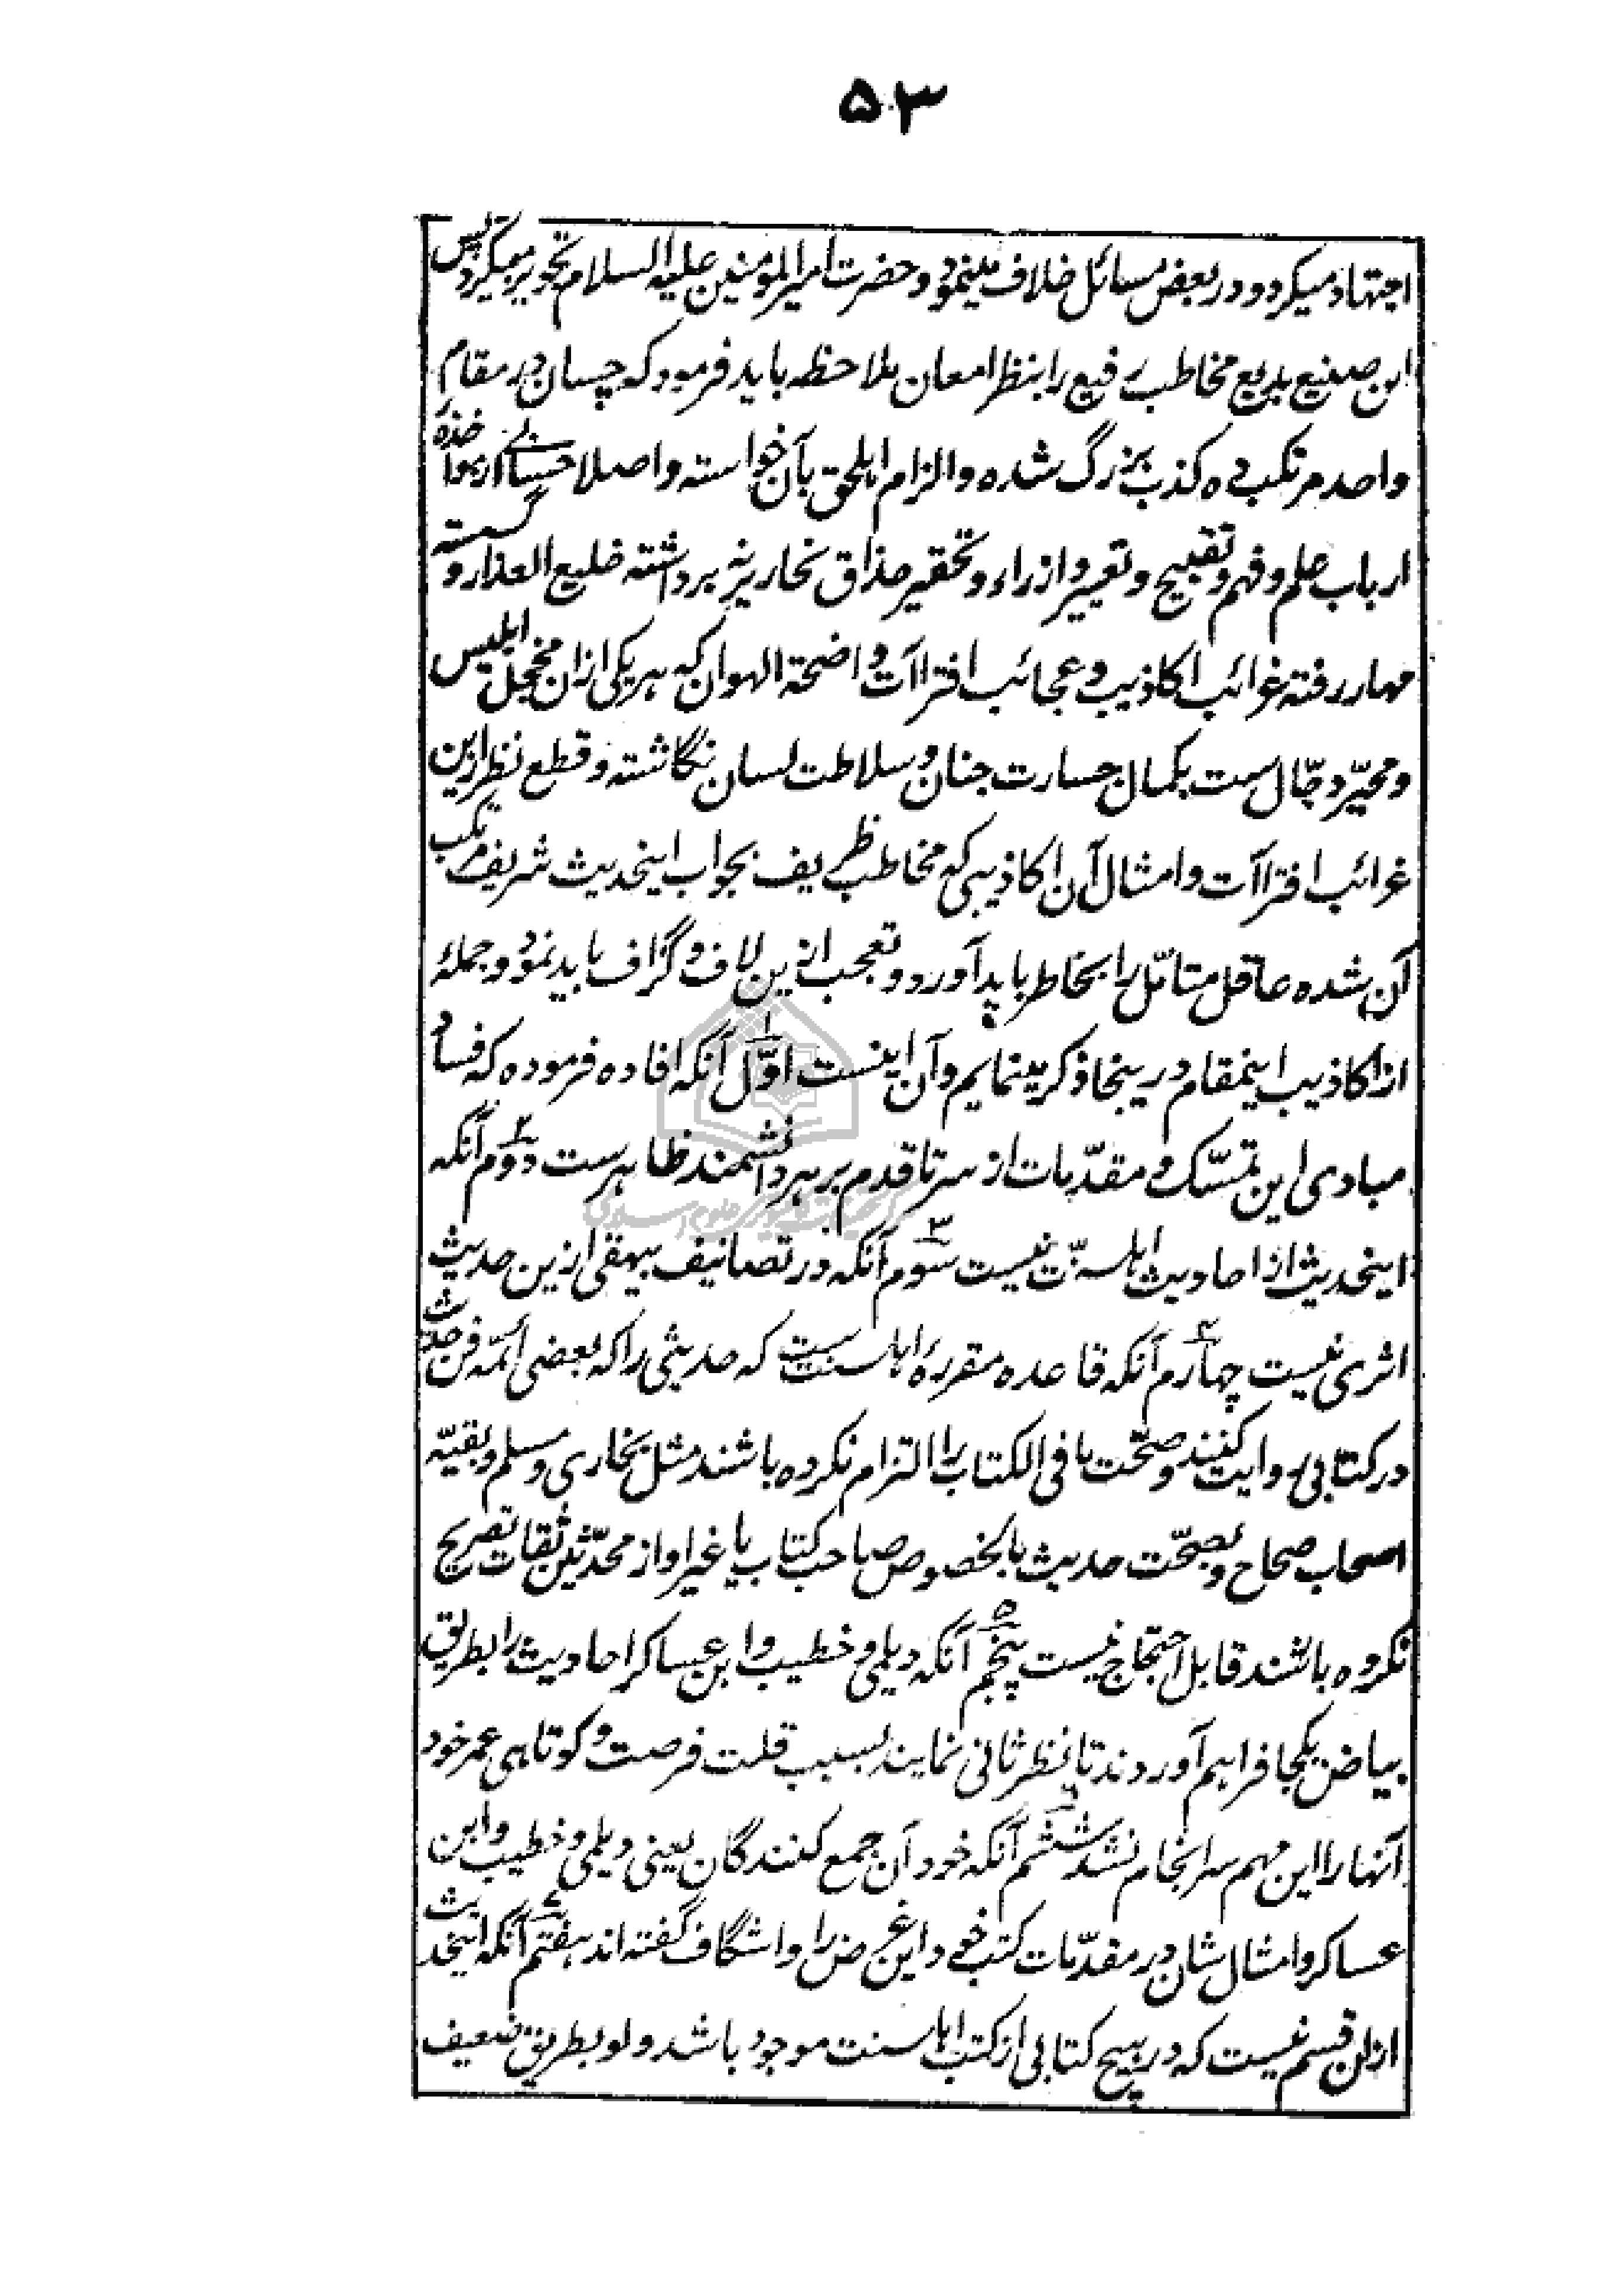 ۵۳
اجتهاد میکرد و در بعض مسائل خلاف مینمود و حضرت امیرالمؤمنین علیه السلام تجویز میکرد پس
این صنیع بدیع مخاطب رفیع را بنظر امعان ملاحظه باید فرمود که چسان در مقام
واحد مرتکب ده کذب بزرگ شده و الزام اهل حق بآن خواسته و اصلا حسابی از مواخذه
ارباب علم و فهم و تقبیح و تعییر و ازراء و تحقیر حذاق نحاریر نه برداشته خلیع العذار و گسسته
مهار رفته غرائب اکاذیب و عجائب افتراآت واضحة الهوان که هر یکی ازان مخجل ابلیس
و محیّر دجّال ست بکمال جسارت جنان و سلاطت لسان نگاشته و قطع نظر ازین
غرائب افتراآت و امثال آن اکاذیبی که مخاطب ظریف بجواب اینحدیث شریف مرتکب
آن شده عاقل متامّل را بخاطر باید آورد و تعجب ازین لاف و گزاف باید نمود و جملهٔ
از اکاذیب اینمقام درینجا ذکر مینمایم و آن اینست اوّل آنکه افاده فرموده که فساد
مبادی این تمسّک و مقدّمات از سر تا قدم بر هر دانشمند ظاهرست دوّم آنکه
اینحدیث از احادیث اهلسنّت نیست سوم آنکه در تصانیف بیهقی ازین حدیث
اثری نیست چهارم آنکه قاعده مقررهٔ اهلسنت ست که حدیثی را که بعضی ائمّه فن حدیث
در کتابی روایت کنند و صحّت ما فی الکتاب را التزام نکرده باشند مثل بخاری و مسلم و بقیّه
اصحاب صحاح و بصحّت حدیث بالخصوص صاحب کتاب یا غیر او از محدّثین ثقات تصریح
نکرده باشند قابل احتجاج نیست پنجم آنکه دیلمی و خطیب و ابن عساکر احادیث را بطریق
بیاض یکجا فراهم آوردند تا بنظر ثانی نمایند بسبب قلت فرصت و کوتاهی عمر خود
آنها را این مهم سرانجام نشد ششم آنکه خود آن جمع کنندگان یعنی دیلمی و خطیب و ابن
عساکر و امثال شان در مقدّمات کتب خود این غرض را واشگاف گفته اند هفتم آنکه اینحدیث
ازان قسم نیست که در هیچ کتابی از کتب اهلسنت موجود باشد ولو بطریق ضعیف